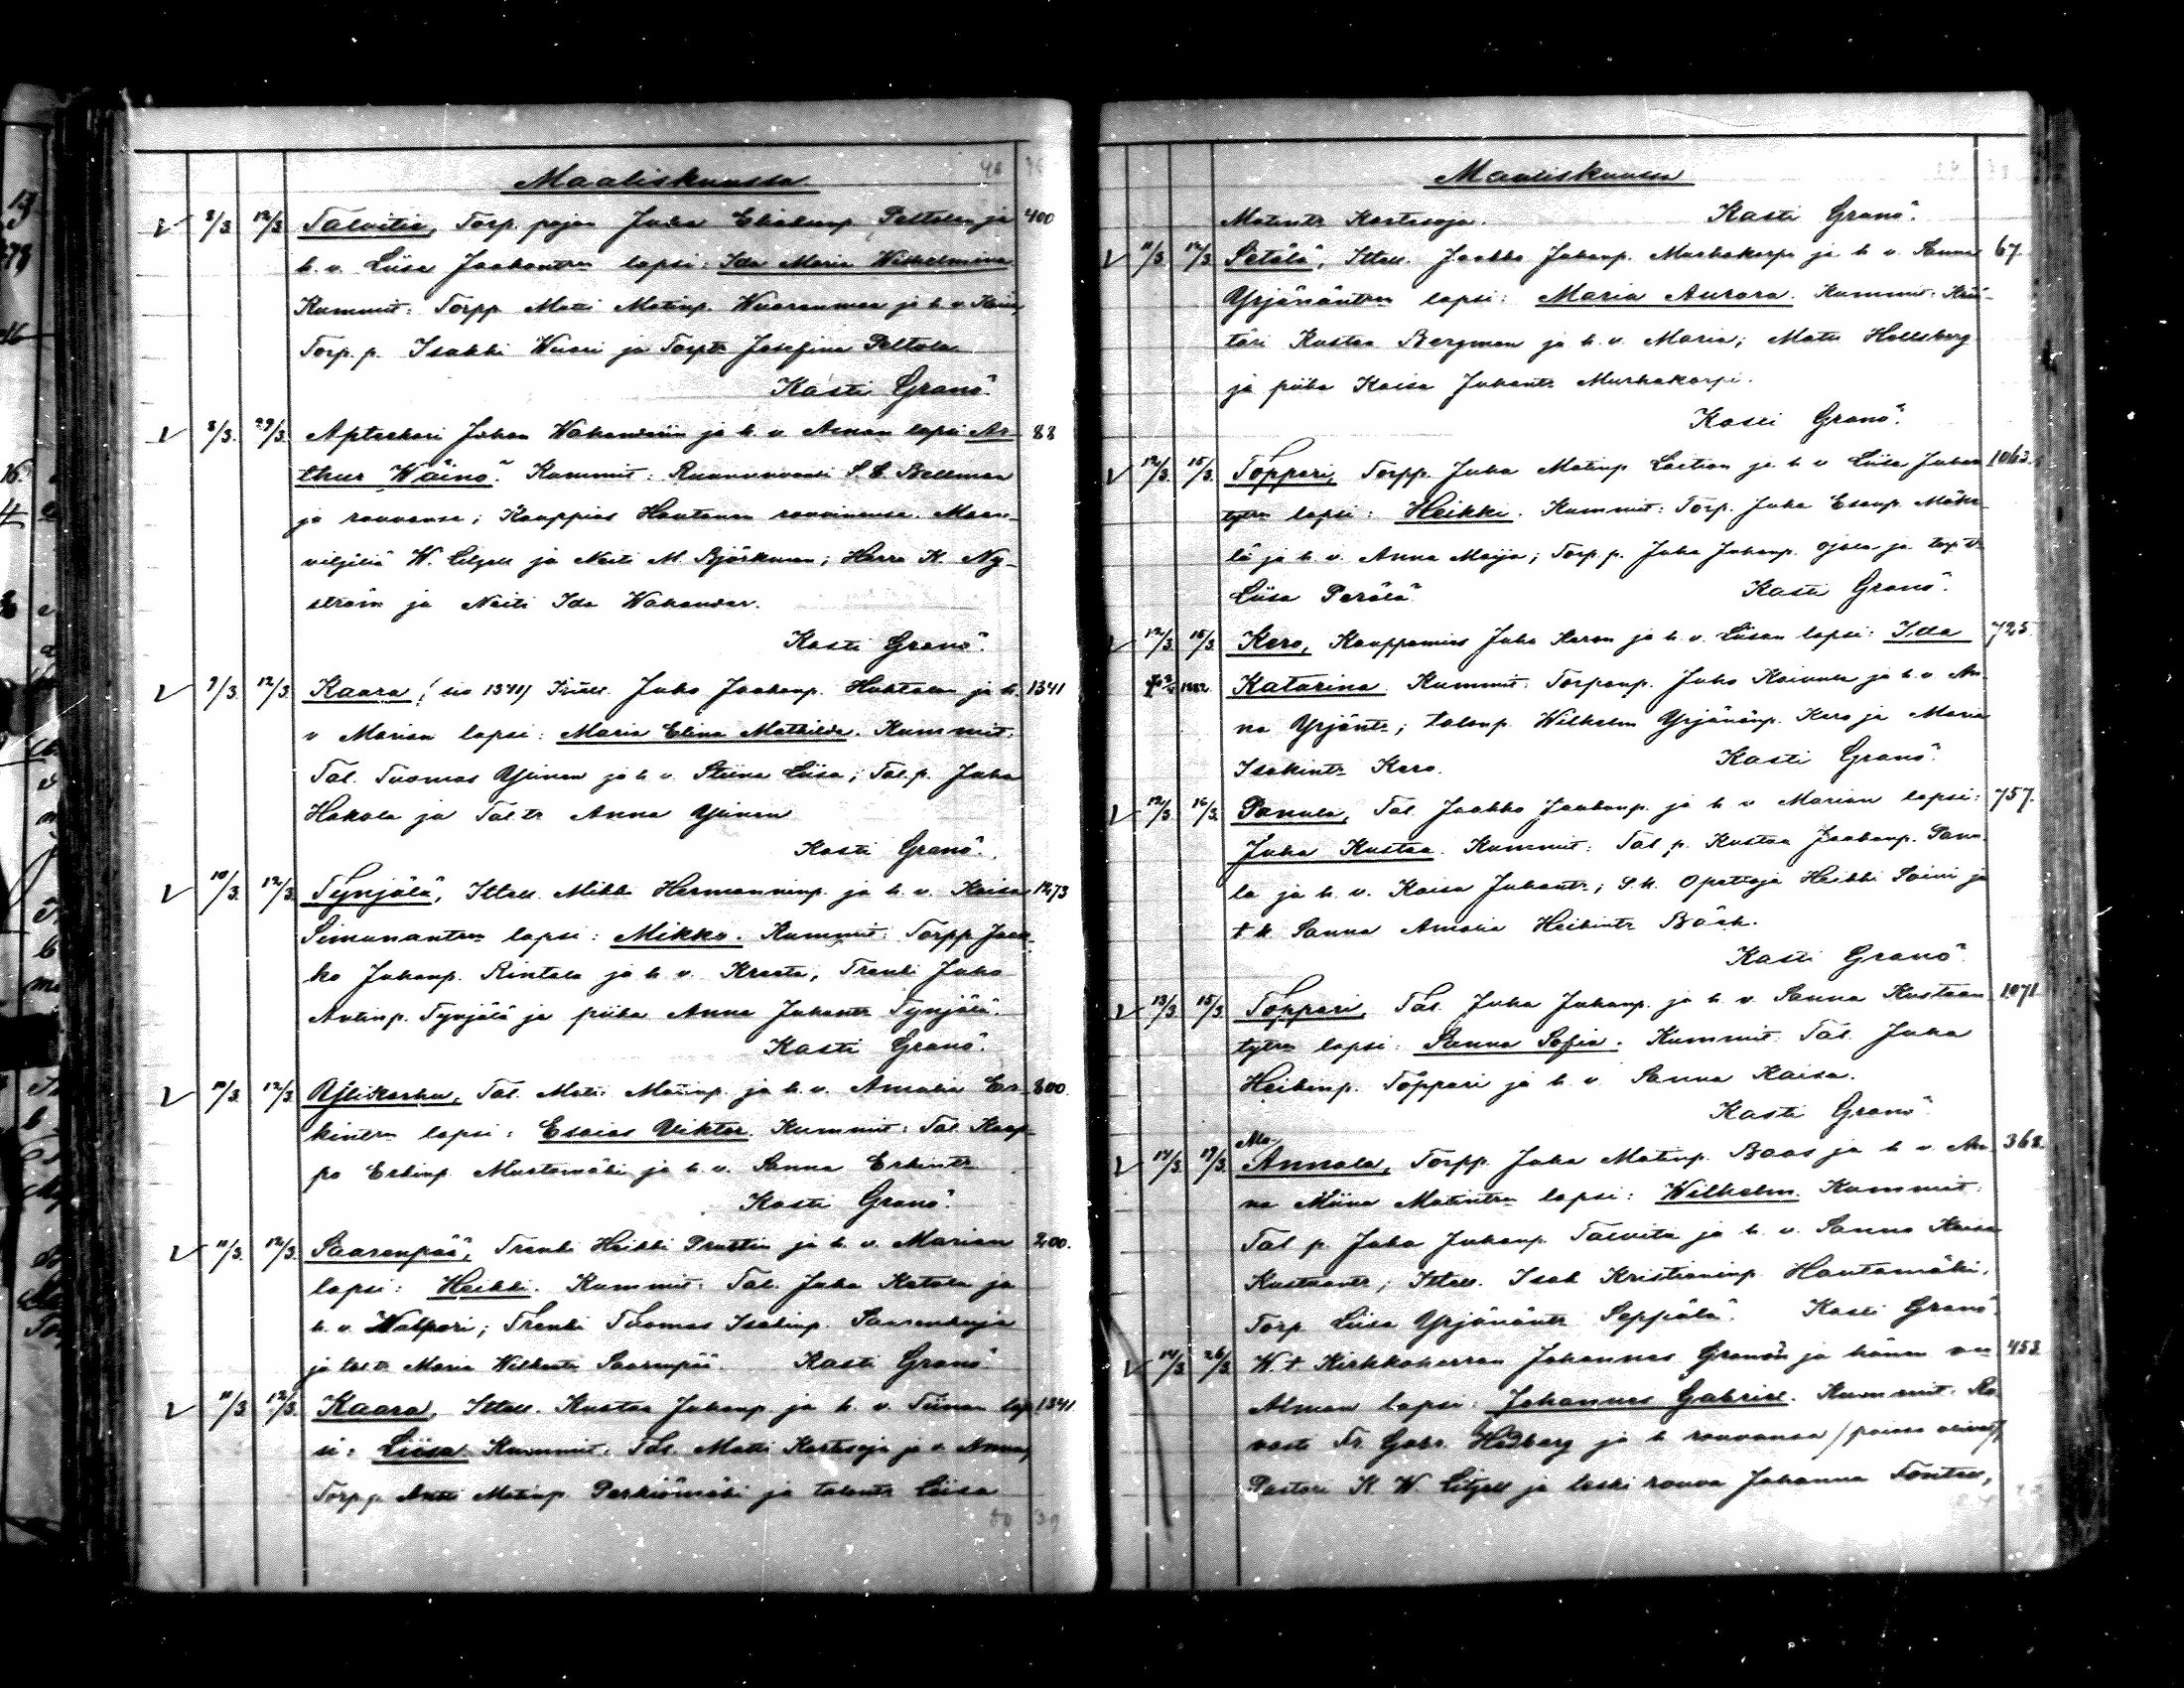 Maaliskuussa
8/3 12/3 Talvitie, Torp. pojan Juha Eliakunp. Peltolan ja 400
h. v. Liisa Jaakontren lapsi: Ida Maria Wilhelmina.
Kummit: Torpp. Matti Matinp. Wuorenmaa ja h. v.
Torp. p. Isakki Wuori ja Torptr. Josefina Peltola
Kasti Granö.
8/3. 29/3. Apteekari Johan Wakanderin ja h. v. Aman lapsi Ar- 88
thur Wäinö. Kummit: Ruununvouti S. E. Bellman
ja rouvansa; Kauppias Hautanen rouvinensa. Maan-
viljeliä W. Liljell ja Neiti M. Björkman; Herra K. Ny-
ström ja Neiti Ida Wakander.
Kasti Granö.
9/3. 12/3. Kaara, (sio 1341) Itsell. Juho Jaakonp. Huhtalan ja h. 1341
v Marian lapsi: Maria Elina Mathilda. Kummit:
Tal. Tuomas Ylinen ja h. v. Stiina Liisa; Tal. p. Juha
Hakola ja Tal. tr Anna Ylinen
Kasti Granö.
10/3. 12/3. Tynjälä, Itsell. Mikki Hermanninp. ja h. v. Kaisa 1273
Simunantren lapsi: Mikko. Kummit: Torpp. Jaak-
ko Juhanp. Rintala ja h. v. Kreeta, Trenki Juho
Antinp. Tynjälä ja piika Anna Juhantr Tynjälä.
Kasti Granö.
10/3. 12/3. Ylikarhu, Tal. Matti Matinp. ja h. v. Amalia Er- 800.
kintren lapsi: Esaias Viktor. Kummit: Tal. Kaap-
po Erkinp. Mustamäki ja h. v. Sanna Erkintr
Kasti Granö.
11/3. 12/3. Saarenpää, Trenki Heikki Prustin ja h. v. Marian 200.
lapsi: Heikki. Kummit: Tal. Juha Katola ja
h. v. Walpori; Trenki Tuomas Isakinp.
ja tal. tr Maria Saarenpää. Kasti Granö
11/3 12/3. Kaara, Itsell. Kustaa Juhanp. ja h. v. Tiinan lap- 1341
si: Liisa. Kummit: Tal. Matti Kortesoja ja v. Anna,
Torp p. Antti Matinp. Perkiömäki ja talontr Liisa
Maaliskuussa
Matintr Kortesoja. Kasti Granö.
11/3 12/3. Setälä, Itsell. Jaakko Juhanp. Murhakorpi ja h. v. Sanna 67
Yrjänäntren lapsi: Maria Aurora. Kummit:
täri Kustaa Bergman ja h. v. Maria; Matts Hellsberg
ja piika Kaisa Juhantr Murhakorpi.
Kasti Granö.
12/3. 15/3. Toppari, Torpp. Juha Matinp. Laitian ja h. v Liisa Juhan 1063.
tytren lapsi: Heikki. Kummit: Torp. Juha Esanp. Mäke-
lä ja h. v. Anna Maija; Torp. p. Juha Juhanp. Ojala ja torp. tr
Liisa Perälä. Kasti Granö.
12/3. 15/3. Kero, Kauppamies Juha Keron ja h. v. Liisan lapsi: Ida 725.
1882. Katarina. Kummit: Torpanp. Juho Koivula ja h. v. An-
na Yrjäntr; talonp. Wilhelm Yrjänänp. Kero ja Maria
Isakintr Kero. Kasti Granö.
12/3 16/3. Panula, Tal. Jaakko Jaakonp. ja h. v Marian lapsi: 757.
Juha Kustaa. Kummit: Tal. p. Kustaa Jaakonp. Panu-
la ja h. v. Kaisa Juhantr; S. k. Opettaja Heikki Soini ja
Sanna Amalia Heikintr Bäck.
Kasti Granö
13/3. 15/3. Toppari, Tal. Juha Juhanp. ja h. v. Sanna Kustaan 1071
tytren lapsi: Sanna Sofia. Kummit: Tal. Juha
Heikinp. Toppari ja h. v. Sanna Kaisa.
Kasti Granö
14/3. 19/3. Ala Annala, Torpp. Juha Matinp. Boos ja h. v. An- 368.
na Miina Matintren lapsi: Wilhelm. Kummit:
Tal. p. Juha Juhanp. Talvitie ja h. v. Sanna Kaisa
Kustaantr; Itsell. Isak Kristianinp. Hautamäki,
Torp. Liisa Yrjänäntr Seppälä. Kasti Granö
14/3. 26/3. W. t. Kirkkoherran Johannes Granön ja hänen v:n 453.
Alman lapsi: Johannes Gabriel. Kummit: Ro-
vasti Fr. Gabr. Hedberg ja h. rouvansa (poissa olivat),
Pastori K. W. Liljell ja leski rouva Johanna Fontell,